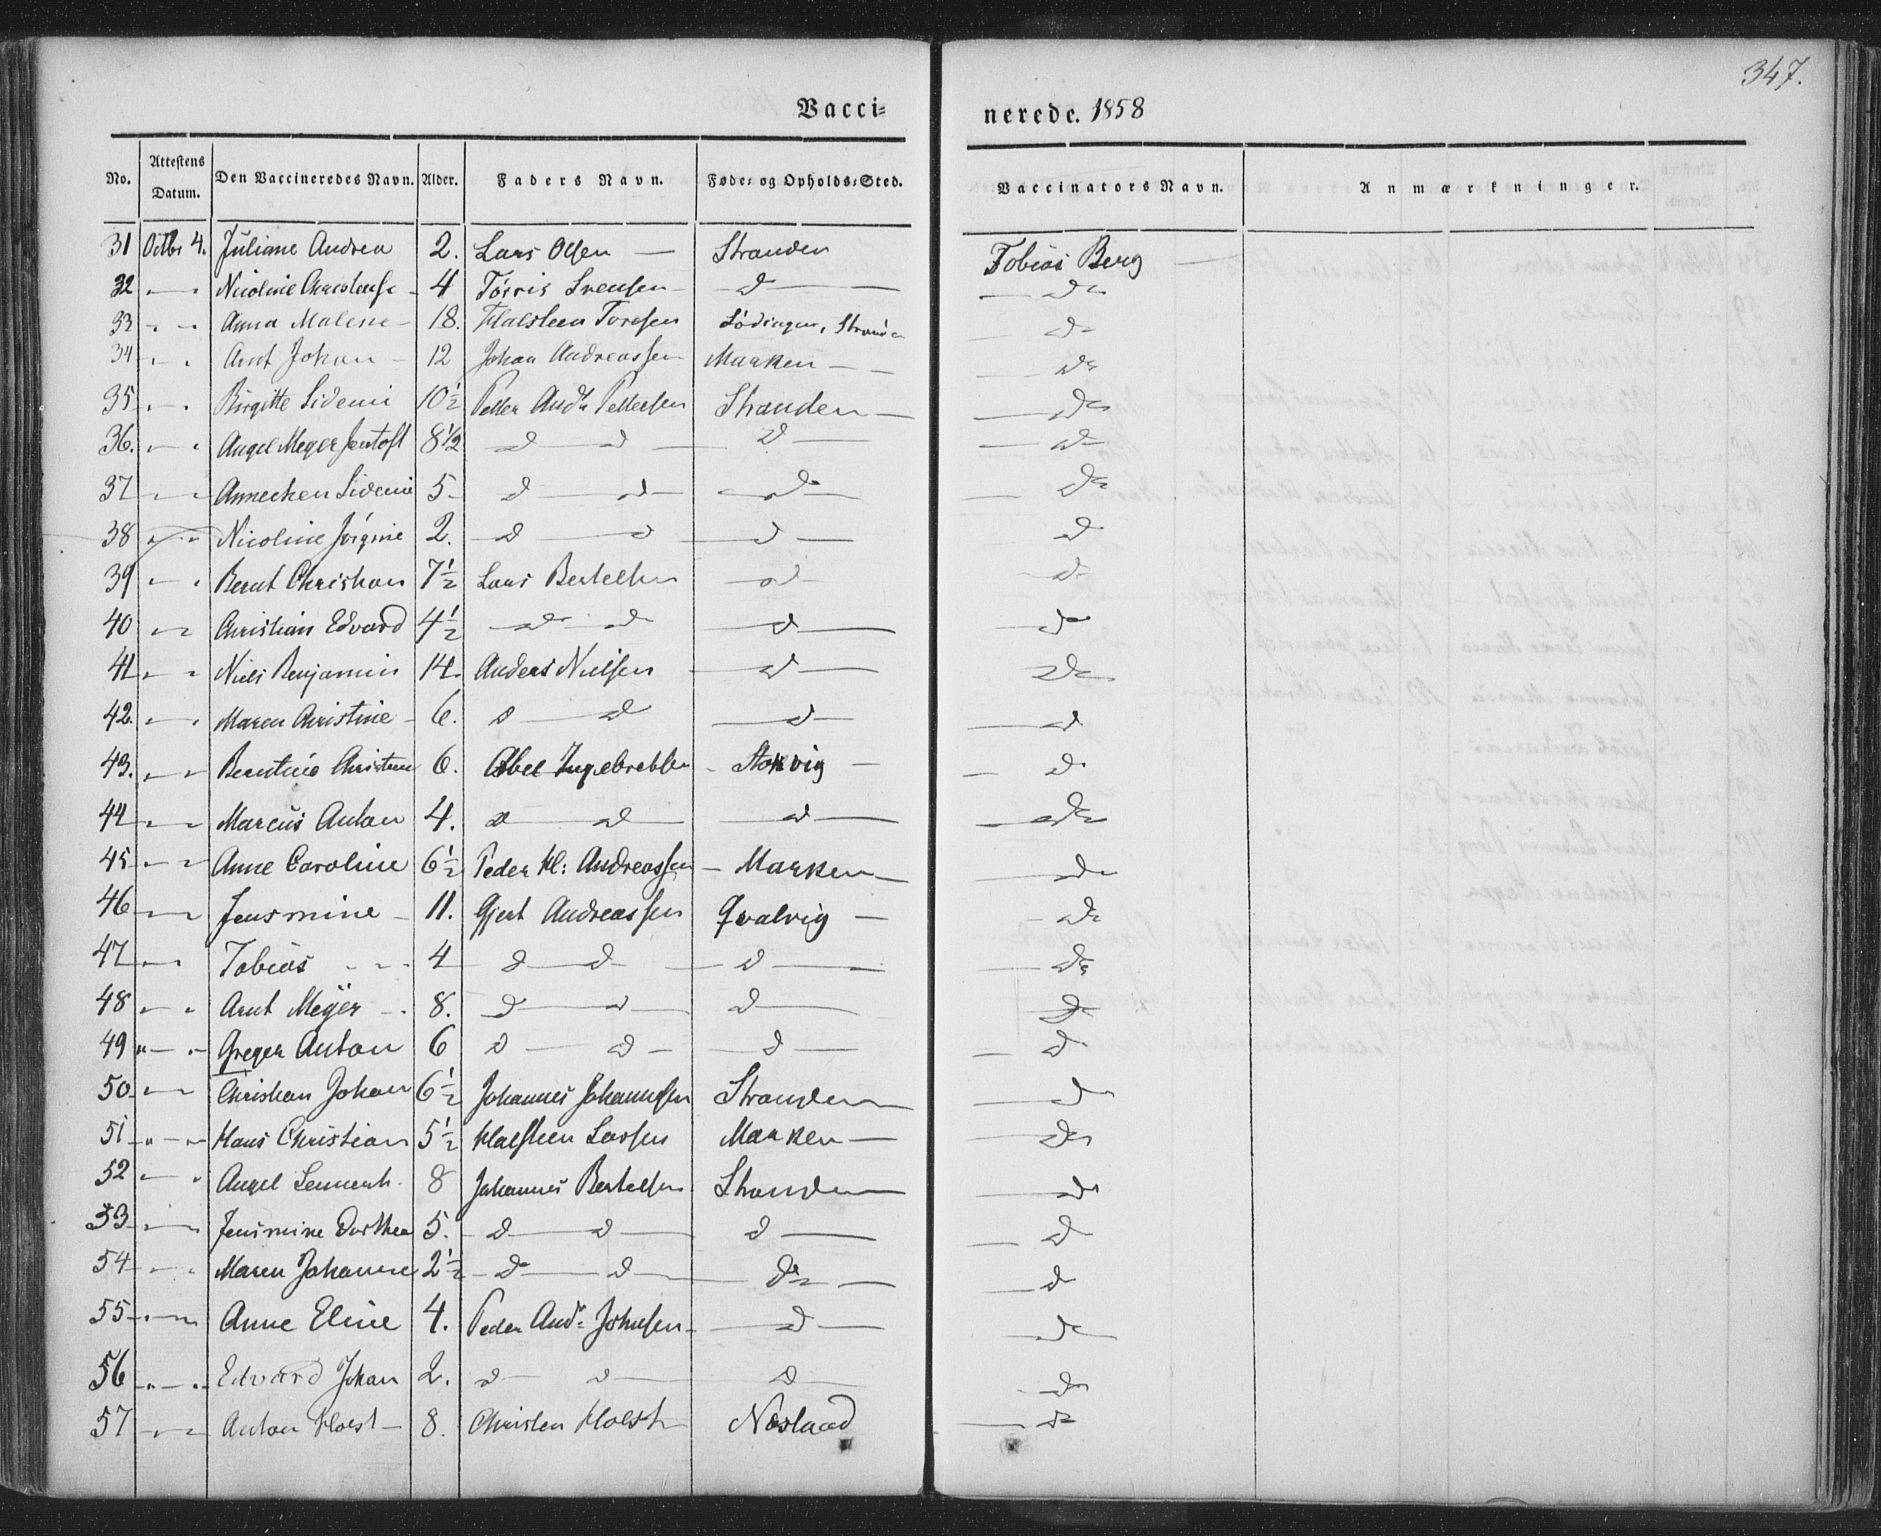 347.
Vacci= nerede. 1858
No. Attestens Datum. Den Vaccineredes Navn. Alder. Faders Navn. Føde= og Opholds=Sted. Vaccinators Navn. Anmærkninger.
31 Octbr 4. Juliane Andrea 2. Lars Olsen — Stranden Tobias Berg —
32 " " Nicoline 4 Tørris Svensen — d — d
33 " " Anna Malene 18. Halsteen Toresen Lødingen, Stranden d
34 " " Arnt Johan 12 Johan Andreassen Marken — d
35 " " Birgitte Sidenie 10 1/2 Petter And. Pettersen Stranden — d
36. " " Angel Meyer Jentoft 8 1/2 d d d d
37 " " Annechen Sidenie 5 d d d d
38 " " Nicoline Jørgine 2. d d d d
39 " " Bernt Christian 7 1/2 Lars Bertelsen d d
40 " " Christian Edvard 4 1/2 d d d d
41 " " Niels Benjamin 14. Anders Nielsen d d
42. " " Maren Christine 6. d d d d
43. " " Berntine Christine 6. Abel Ingebretsen Stokvig d
44 " " Marcus Anton 4. d d d d
45 " " Anne Caroline 6 1/2 Peder Kl: Andreassen Marken d
46 " " Jensmine 11. Gjert Andreassen Qvalvig d
47 " " Tobias 4 d d d d
48 " " Arnt Meÿer 8. d d d d
49 " " Greger Anton 6 d d d d
50 " " Christian Johan 6 1/2 Johannes Johannesen Stranden d
51 " " Hans Christian 5 1/2 Halsteen Larsen Marken d
52 " " Angel 8 Johannes Bertelsen Stranden d
53 " " Jensmine Dorthea 5. d d d d
54 " " Maren Johanne 2 1/2 d d d d
55 " " Anne Eline 4. Peder And. Johnsen d d
56 " " Edvard Johan 2. d d d d
57 " " Anton Holst 8. Christen Holst Næsland d